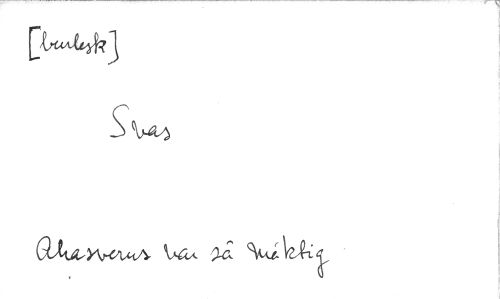 [burlesk]
Svas
Ahasverus var så mäktig